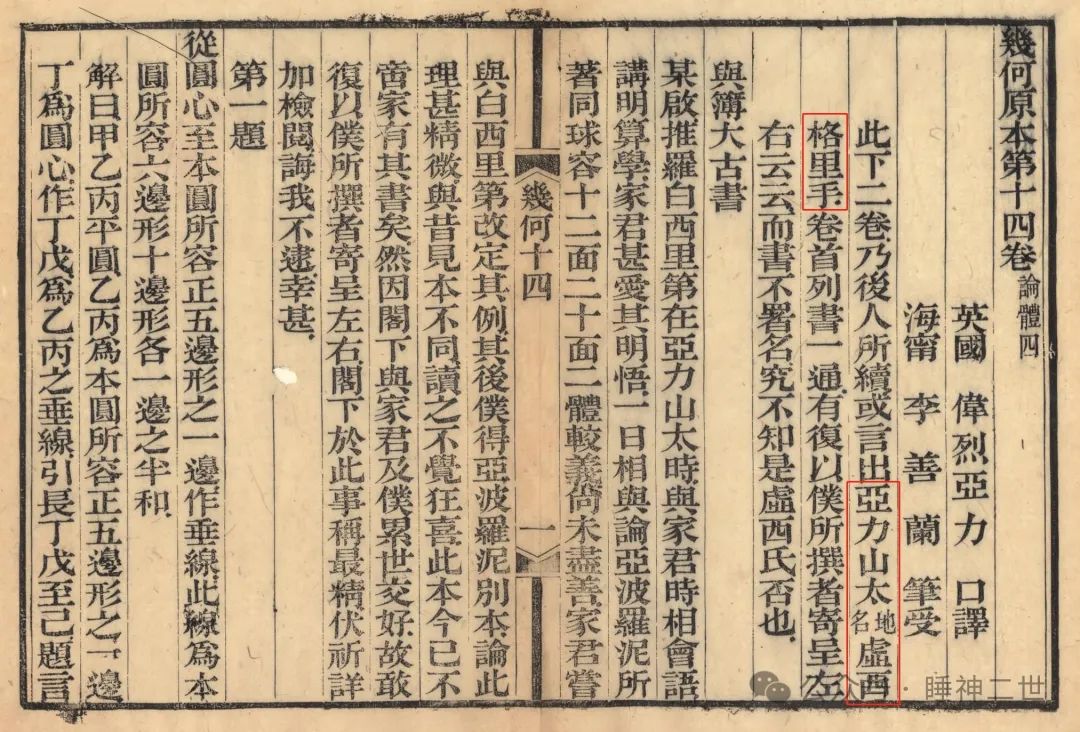 幾何原本第十四卷 論體四
英國 偉烈亞力 口譯
海甯 李善蘭 筆受
此下二卷乃後人所續或言出亞力山太地名虛西
格里手卷首列書一通有復以僕所撰者寄呈左
右云云而書不署名究不知是虛西氏否也
與簿大古書
某啟推羅白西里第在亞力山太時與家君時相會語
講明算學家君甚愛其明悟一日相與論亞波羅泥所
著同球容十二面二十面二體較義尙未盡善家君嘗
幾何十四
一
與白西里第改定其例其後僕得亞波羅泥別本論此
理甚精微與昔見本不同讀之不覺狂喜此本今已不
啻家有其書矣然因閣下與家君及僕累世交好故敢
復以僕所撰者寄呈左右閣下於此事稱最精伏祈詳
加檢閱誨我不逮幸甚
第一題
從圓心至本圓所容正五邊形之一邊作垂線此線爲本
圓所容六邊形十邊形各一邊之半和
解曰甲乙丙平圓乙丙爲本圓所容正五邊形之一邊
丁爲圓心作丁戊爲乙丙之垂線引長丁戊至己題言
公众号·睡神二世